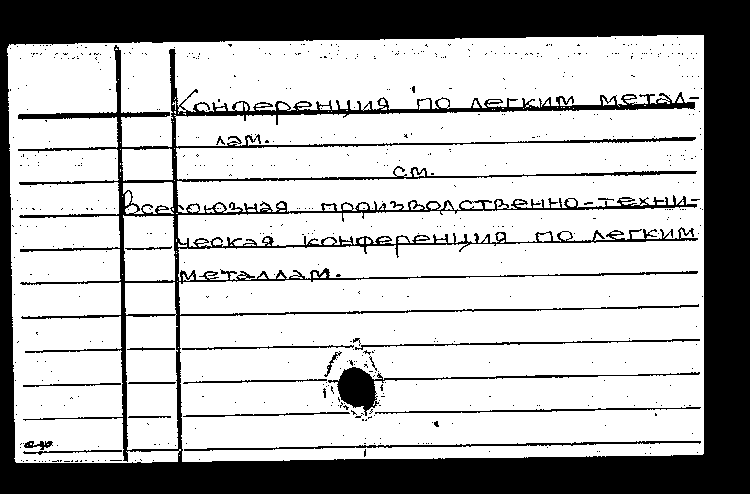 Конференция по легким метал-
лам.
см.
Всесоюзная производственно-техни-
ческая конференция по легким
металлам.